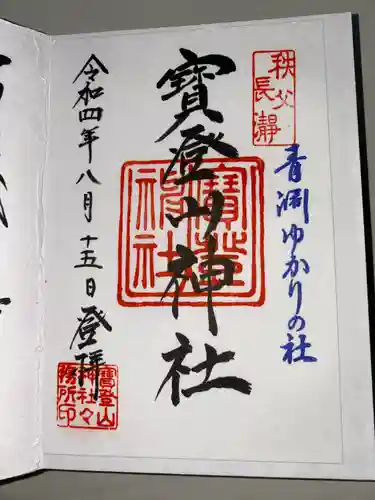 秩父
長瀞
青淵ゆかりの社
寶登山神社
寶登山
神社
令和四年八月十五日登拝
寶登山
神社々
務所印